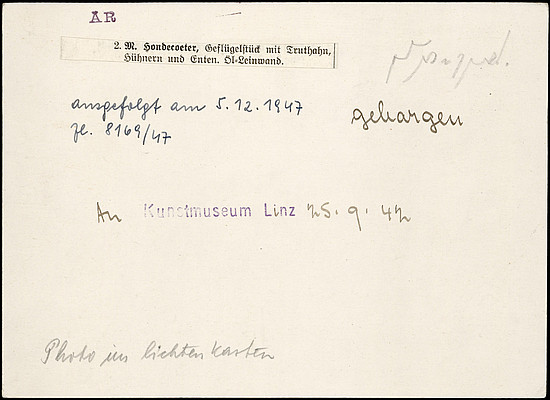 AR
2. M. Hondecoeter, Geflügelstück mit Truthahn,
Hühnern und Enten. Öl-Leinwand.
ausgefolgt am 5.12.1947
Zl. 8169/47
geborgen
An Kunstmuseum Linz 25.9.42
Photo im lichten Kasten